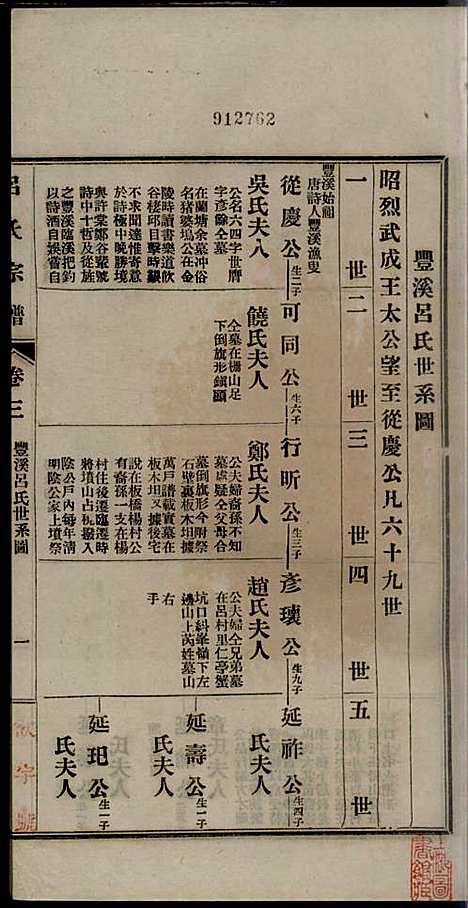 912762
豐溪呂氏世系圖
昭烈武成王太公望至從慶公凡六十九世
一世
二世
三世
四世
五世
豐溪始祖
唐詩人豐溪漁叟
從慶公生二子
可同公生六子
行昕公生三子
彥瓌公生九子
延祚公生四子
吳氏夫人
饒氏夫人
鄭氏夫人
趙氏夫人
氏夫人
公名六四字世膺
字彥餘仝墓
在蘭塘余墓冲俗
名猪婆塢公在金
陵時讀書樂道飲
谷棲邱目擊時艱
不求聞達惟寄意
於詩極中晚勝境
與許棠鄭谷輩號
詩中十哲及從族
之豐溪臨溪把釣
以詩酒自娛嘗自
仝墓在柵山足
下倒旗形鎮顧
公夫婦裔孫不知
墓處疑仝父母合
墓倒旗形今附祭
石壁裏板木坦據
萬戶譜載實墓在
板木坦又據後宅
說在板橋楊村公
有裔孫一支在楊
村住後遷臨遷時
將墳山占板撥入
陰公戶內每年清
明陰公家上墳祭
公夫婦仝兄弟墓
在呂村里仁亭蟹
坑口糾峯嶺下左
邊山上芮姓墓山
右
手
延壽公生一子
氏夫人
延玘公生一子
氏夫人
呂氏宗譜
卷三
豐溪呂氏世系圖
一